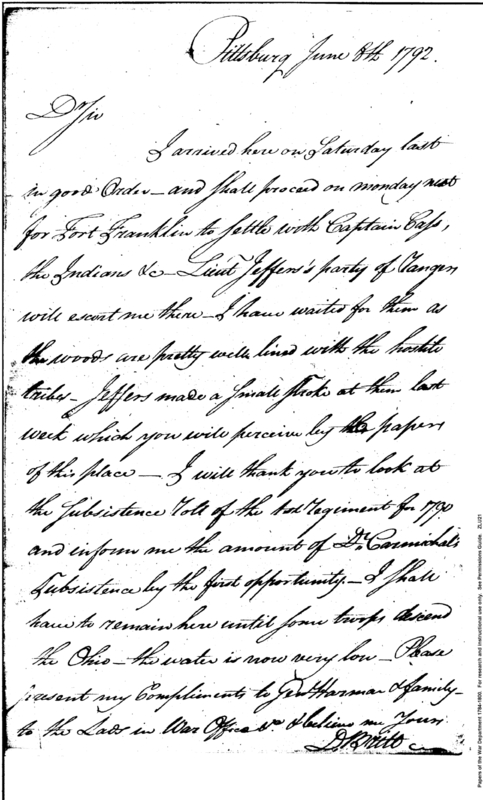 Pittsburg June 8th 1792.
Dr Sir
I arrived here on Saturday last
in good Order – and shall proceed on monday next
for Fort Franklin to settle with Captain Cass,
the Indians &c – Lieut Jeffers's party of Rangers
will escort me there – I have waited for them as
the woods are pretty well lined with the hostile
tribes – Jeffers made a small stroke at them last
week which you will perceive by the papers
of this place — I will thank you to look at
the Subsistence Roll of the Regiment for 1790
and inform me the amount of Dr. Carmichal's
Subsistence by the first opportunity. – I shall
have to remain here until some troops descend
the Ohio – the water is now very low – Please
present my Compliments to Genl Harmar & family –
to the Lads in War Office &c & believe me Yours
D Britt
Papers of the War Department 1784-1800. For research and instructional use only. See Permissions Guide. ZLU21